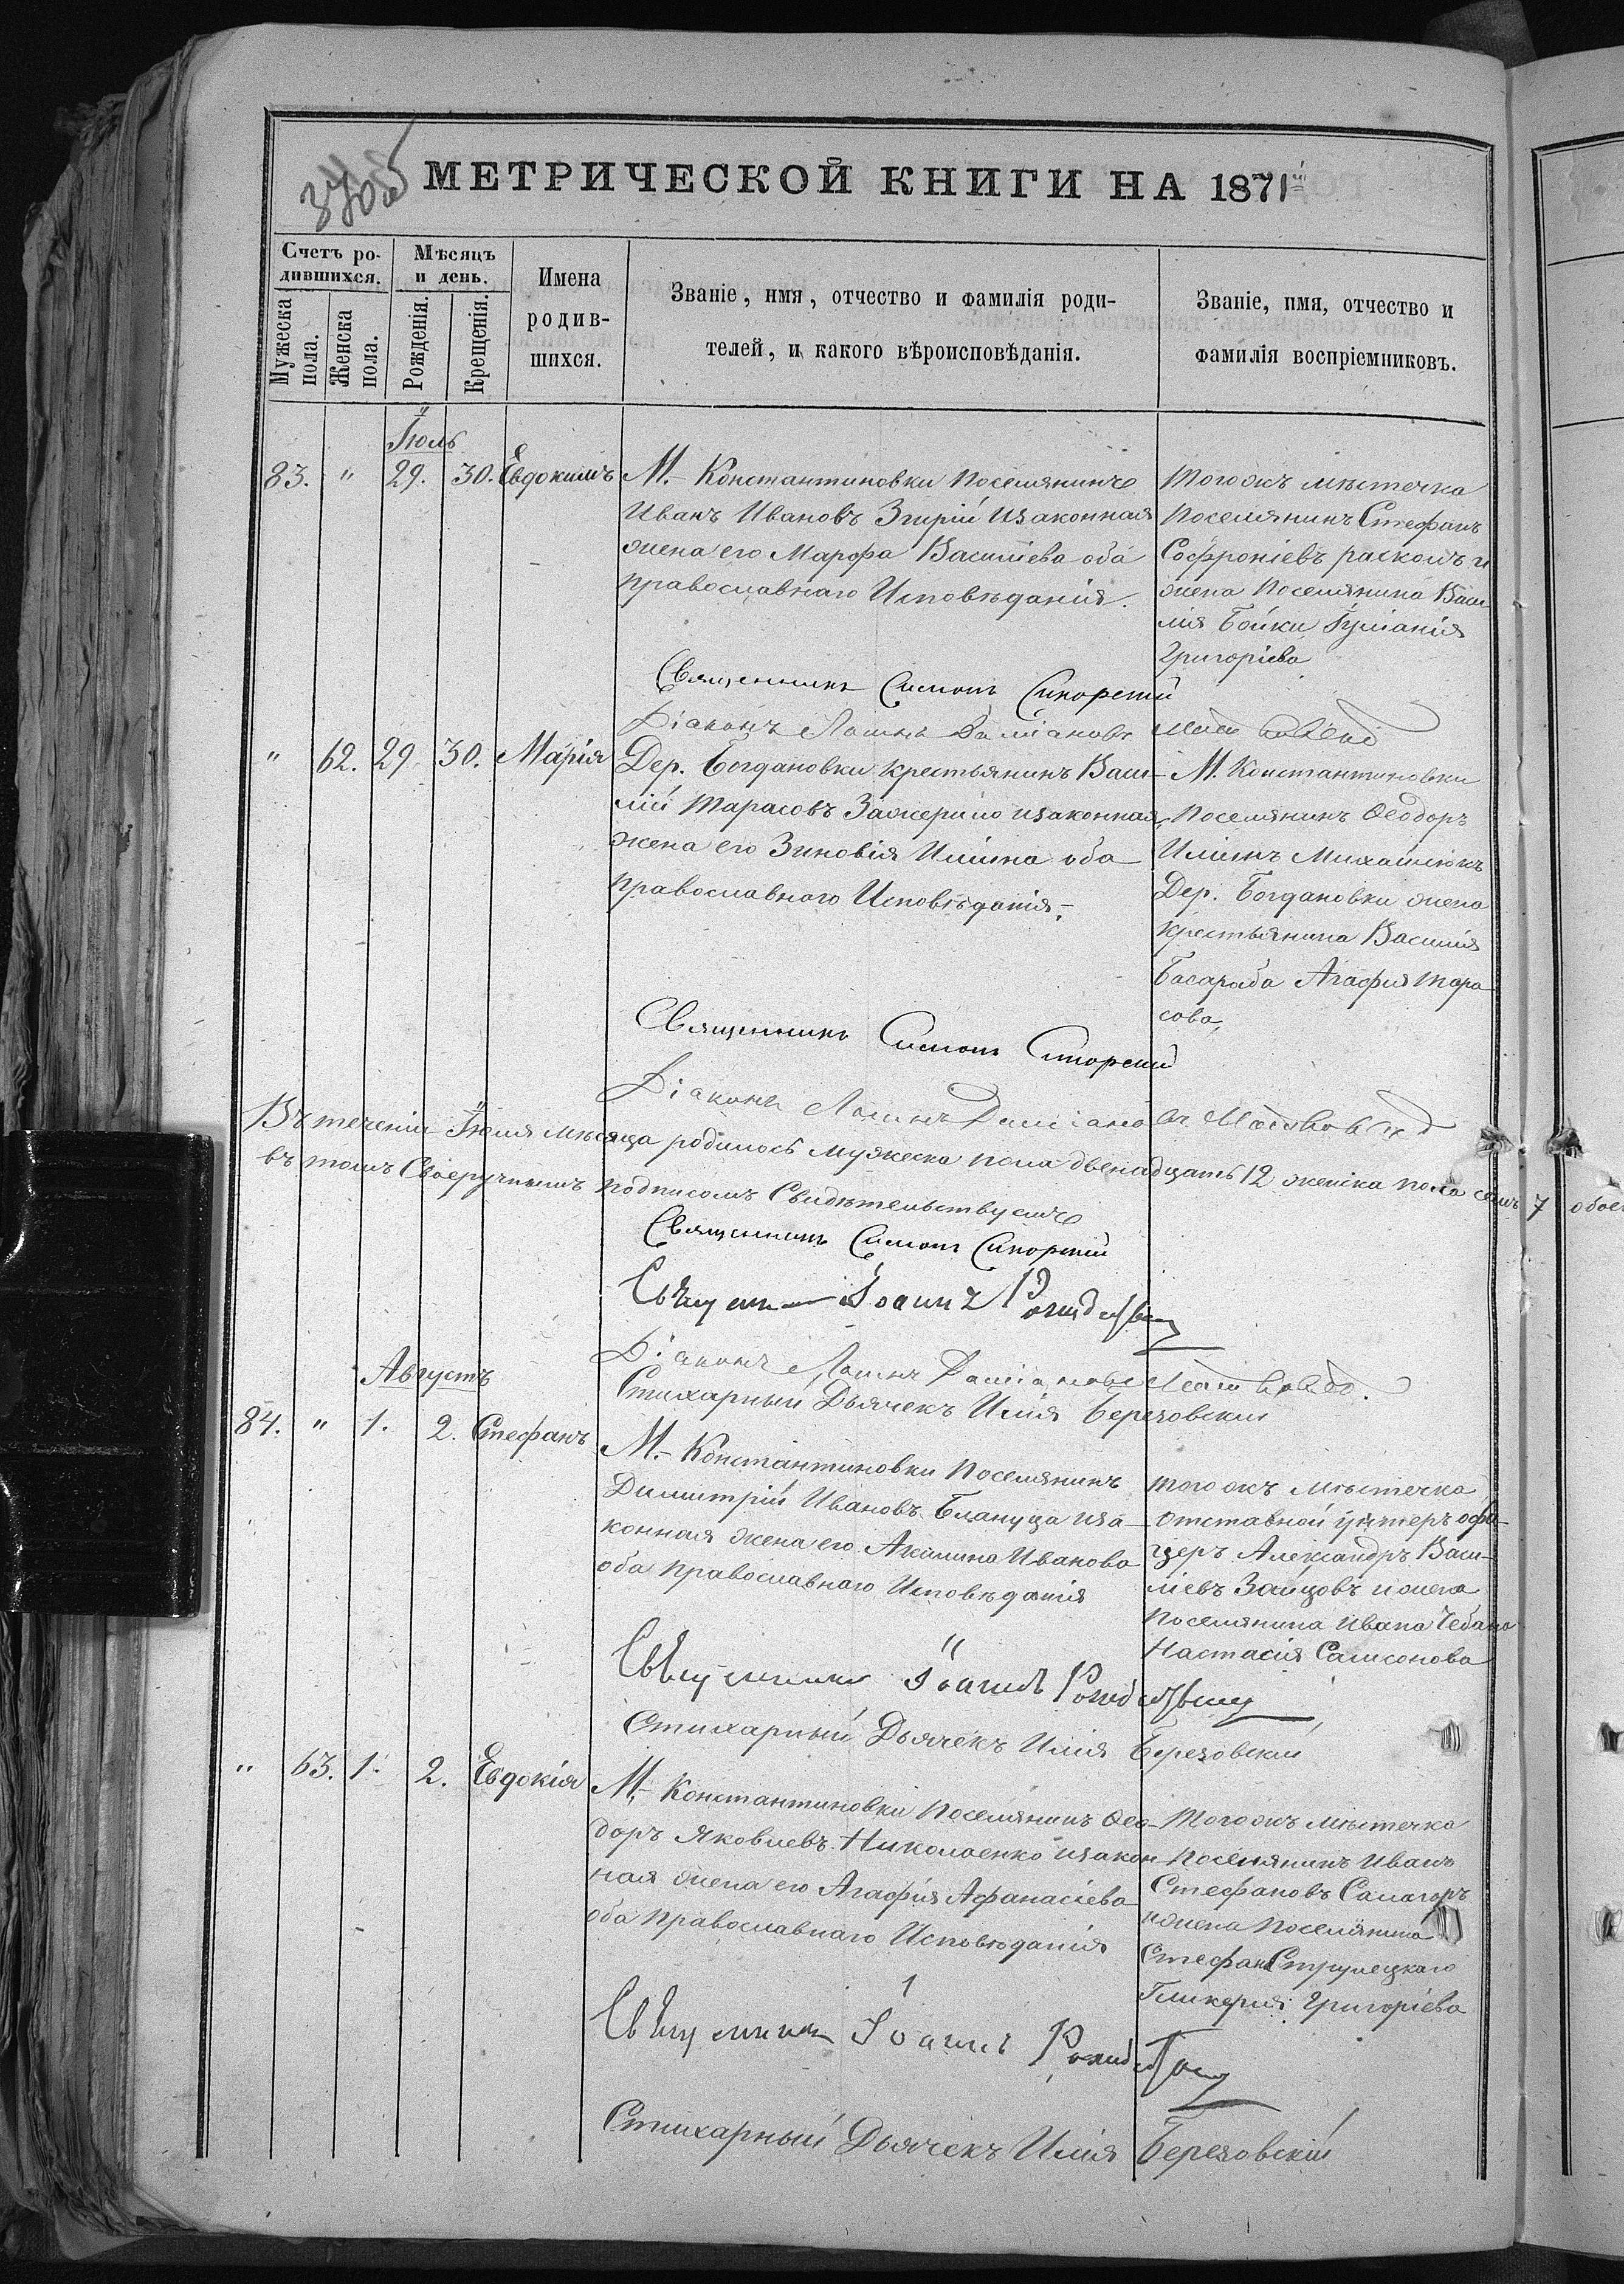 370об
МЕТРИЧЕСКОЙ КНИГИ НА 1871й
Счетъ ро-
дившихся.
Мужеска
пола.
Женска
пола.
Мѣсяцъ
и день.
Рожденія.
Крещенія.
Имена
родив-
шихся.
Званіе, имя, отчество и фамилія роди-
телей, и какого вѣроисповѣданія.
Званіе, имя, отчество и
фамилія воспріемниковъ.
Іюль
83. " 29. 30. Евдокимъ
М.- Константиновки Поселянинъ
Иванъ Ивановъ Згирій изаконная
жена его Марфа Василіева оба
православнаго Исповѣданія.
Тогожъ мѣстечка
Поселянинъ Стефанъ
Софроніевъ и
жена Поселянина Васи-
лія Бойки Іуліанія
Григоріева
Священникъ Симонъ Сикорскій
Діаконъ Логинъ Даміановъ
" 62. 29. 30. Марія
Дер. Богдановки крестьянинъ Васи-
лій Тарасовъ изаконная
жена его Зиновія Иліина оба
православнаго Исповѣданія.-
М. Константиновки
Поселянинъ Ѳеодоръ
Иліинъ Михайлюкъ
Дер. Богдановки жена
крестьянина Василія
Басараба Агафія Тара
сова,
Священникъ Симонъ Сикорскій
Діаконъ Логинъ Даміановъ
Въ теченіи Іюля мѣсяца родилось мужеска пола двенадцать 12 женска пола семь 7 обоего
въ томъ Своеручнымъ подписомъ Свидѣтельствуемъ
Священникъ Симонъ Сикорскій
Священникъ Іоаннъ
Діаконъ Логинъ Даміановъ
Стихарный Дьячекъ Илія Березовскій
Августъ
84. " 1. 2. Стефанъ
М.- Константиновки Поселянинъ
Димитрій Ивановъ Блануца иза-
конная жена его Акилина Иванова
оба православнаго Исповѣданія
Тогожъ мѣстечка
отставной унтеръ офи-
церъ Александръ Васи-
ліевъ Зайцовъ и жена
Поселянина Ивана Чебана
Настасія Самсонова
Священникъ Іоаннъ
Стихарный Дьячекъ Илія Березовскій
" 63. 1. 2. Евдокія
М.- Константиновки Поселянинъ Ѳео-
доръ Яковлевъ Николаенко изакон
ная жена его Агафія Афанасіева
оба православнаго Исповѣданія
Тогожъ мѣстечка
Поселянинъ Иванъ
Стефановъ
ижена Поселянина
Стефана
Гликерія Григоріева
Священникъ Іоаннъ
Стихарный Дьячекъ Илія Березовскій